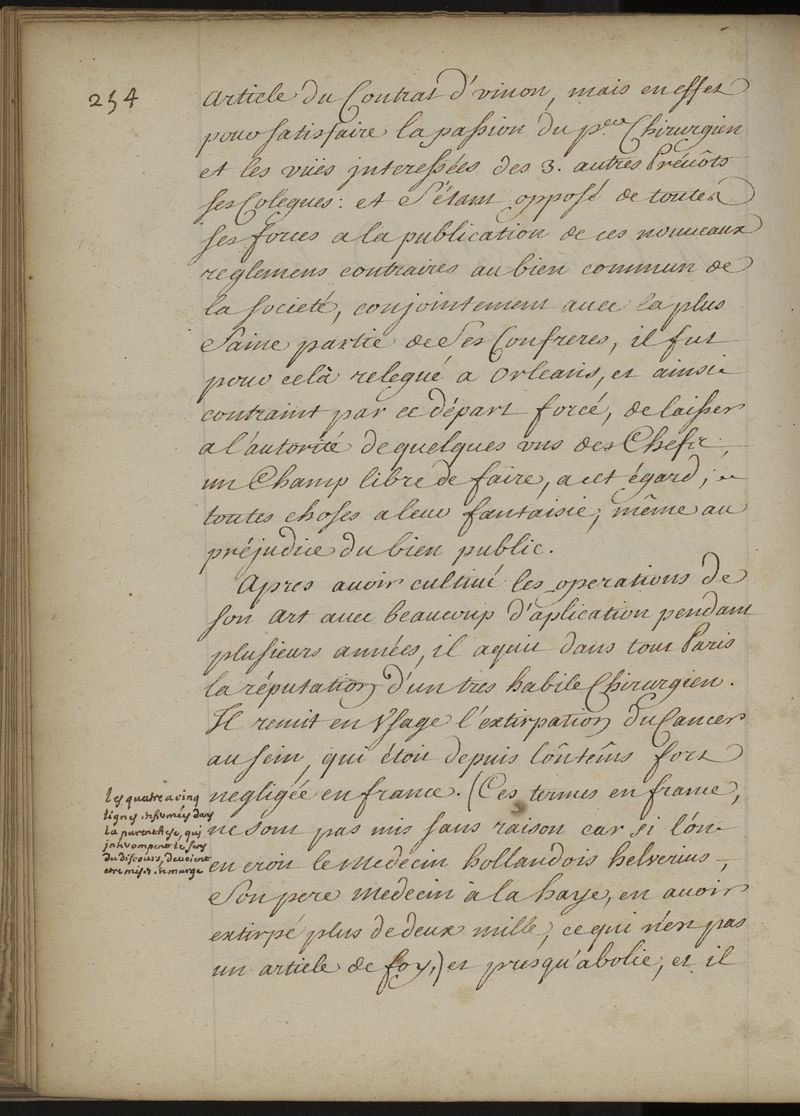 254
article du Contrat d'vnion, mais en effet
pour satisfaire la passion du p.er Chirurgien
et les vües interessées des 3. autres Prévôts
ses Colegues: et s'étant opposé de toutes
ses forces a la publication de ces nouveaux
reglemens contraires au bien commun de
la societé, conjointement avec la plus
saine partie de ses Confreres, il fut
pour celà relegué a Orleans, et ainsi
contraint par ce départ forcé, de laisser
a l'autorité de quelques vns des Chefs,
un Champ libre de faire, a cet égard,
toutes choses a leur fantaisie, même au
préjudice du bien public.
Apres auoir cultiué les operations de
son art auec beaucoup d'aplication pendant
plusieurs années, il aquit dans tout Paris
la réputation d'un tres habile Chirurgien.
Il remit en Vsage l'extirpation du Cancer
au sein, qui étoit depuis lontêms fort
negligée en france. (Ces termes en france,
ne sont pas mis sans raison car si l'on
en croit le medecin hollandois helvetius,
son pere medecin à la haye, en auoit
extirpé plus de deux mille, ce qui n'est pas
un article de foy,) et presqu'abolie, et il
les quatre a cinq
lignes enfermées dans
la parenthese, qui
interrompent le sens
du discours, devoient
etre mises en marge